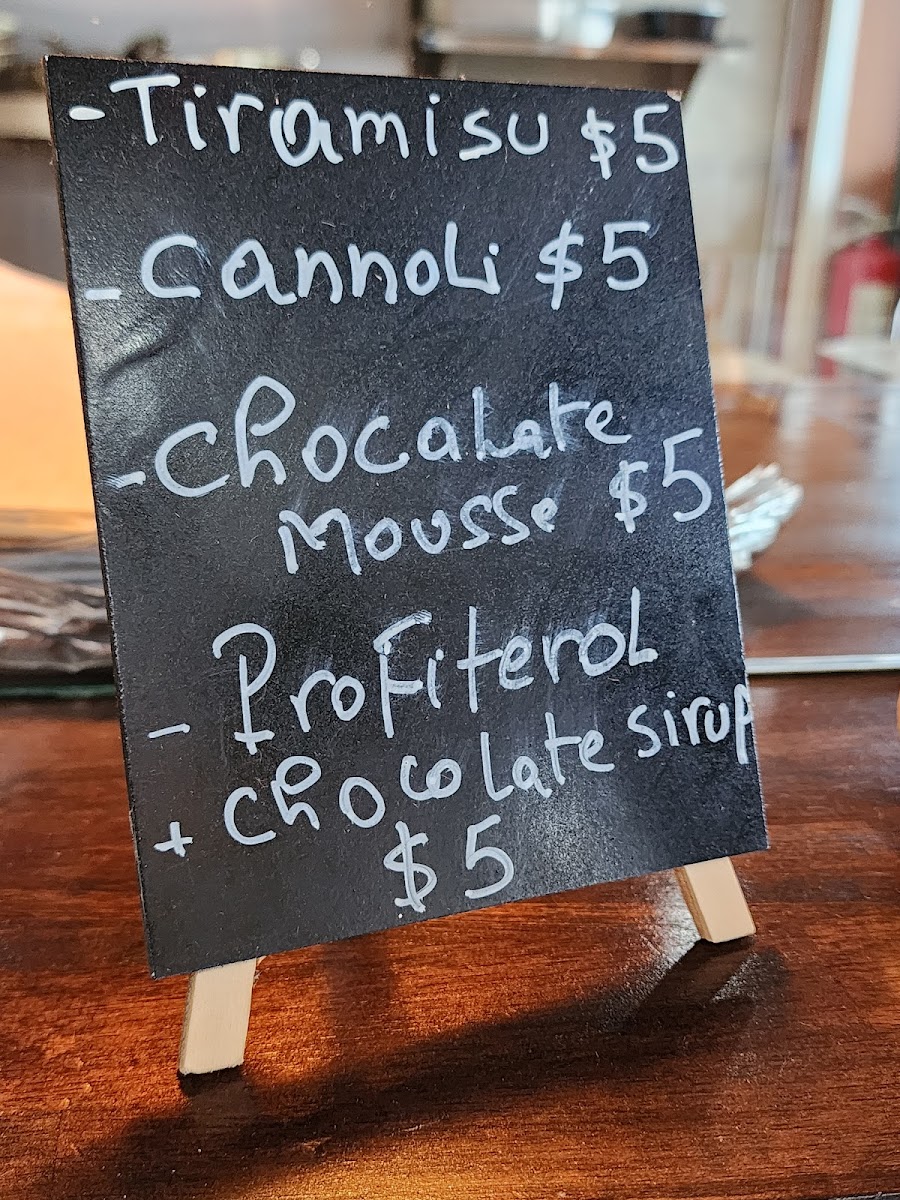 - Tiramisu $5
- Cannoli $5
- Chocalate
Mousse $5
- Profiterol
+ Chocolate sirup
$5